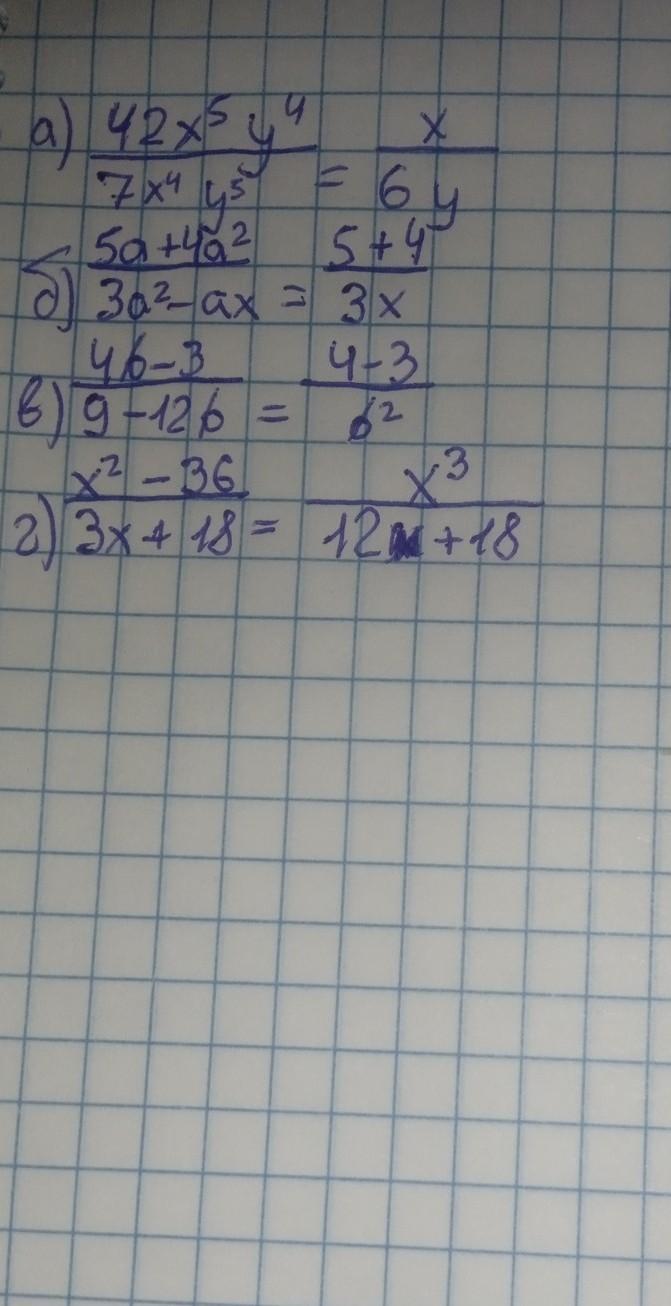 а) 42x⁵y⁴ / 7x⁴y⁵ = x / 6y
б) 5a+4a² / 3a²-ax = 5+4 / 3x
в) 4b-3 / 9-12b = 4-3 / b²
г) x²-36 / 3x+18 = x³ / 12+18